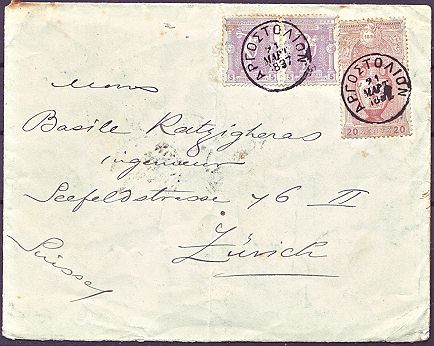 ΑΡΓΟΣΤΟΛΙΟΝ
21
ΜΑΡΤ
897
5 5
ΑΡΓΟΣΤΟΛΙΟΝ
21
ΜΑΡΤ
897
20 20
Mons
Basile Ratzigheras
ingenieur
Seefeldstrasse 76 II
Zürich
Suisse